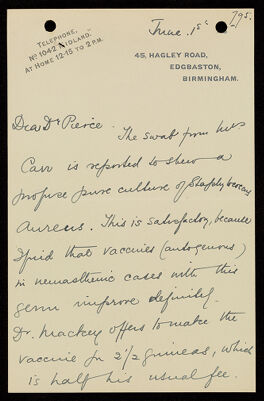 795.
TELEPHONE,
No 1042 MIDLAND.
AT HOME 12-15 TO 2 P.M.
June. 1st
45, HAGLEY ROAD,
EDGBASTON,
BIRMINGHAM.
Dear Dr Pierce.
The swab from Mrs
Carr is reported to shew a
profuse pure culture of Staphylococcus
Aureus. This is satisfactory, because
I find that vaccines (autogenous)
in neurasthenic cases with this
germ improve definitely.
Dr. Mackey offers to make the
vaccine for 2 1/2 guineas, which
is half his usual fee.